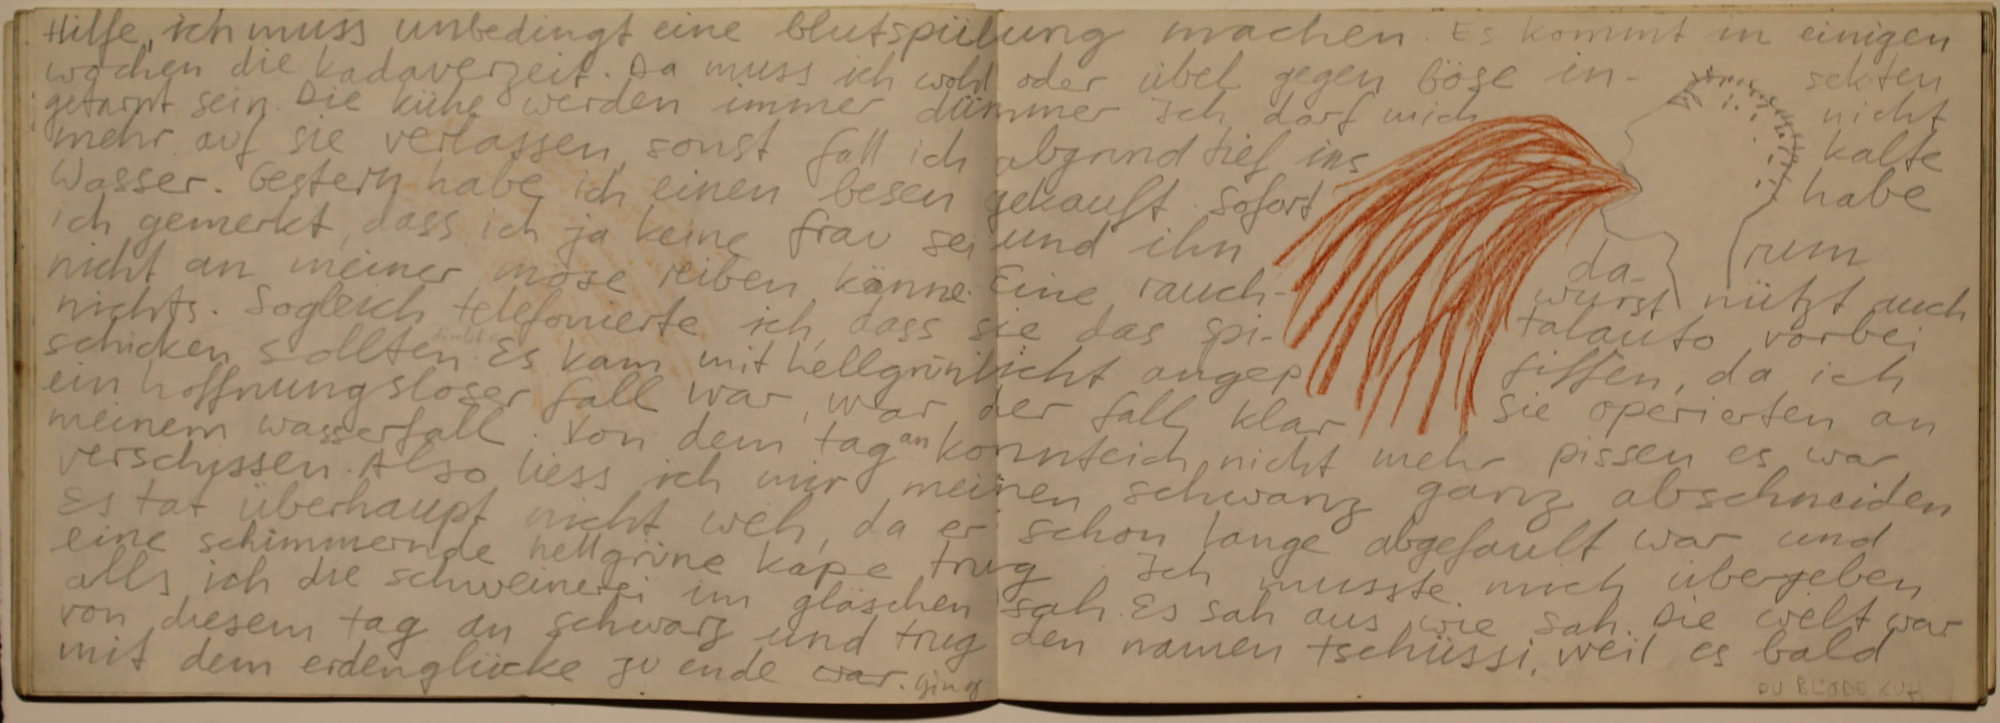 Hilfe, ich muss unbedingt eine blutspülung machen. Es kommt in einigen
wochen die kadaverzeit. Da muss ich wohl oder übel gegen böse in- sekten
getarnt sein. Die kühe werden immer dümmer Ich darf mich nicht
mehr auf sie verlassen, sonst fall ich abgrund tief ins kalte
Wasser. Gestern habe ich einen besen gekauft. Sofort habe
ich gemerkt, dass ich ja keine frau sei und ihn da- rum
nicht an meiner möse reiben könne. Eine rauch- wurst nützt auch
nichts. Sogleich telefonierte ich, dass sie das spi- talauto vorbei
schicken sollten. Es kam mit hellgrünlicht angep fiffen, da ich
ein hoffnungsloser fall war, war der fall klar Sie operierten an
meinem wasserfall. Von dem tag an konnte ich nicht mehr pissen es war
verschissen. Also liess ich mir meinen schwanz ganz abschneiden
Es tat überhaupt nicht weh, da er schon lange abgefault war und
eine schimmernde hellgrüne kape trug. Ich musste mich übergeben
alls ich die schweinerei im gläschen sah. Es sah aus wie sah. Die welt war
von diesem tag an schwarz und trug den namen tschüssi, weil es bald
mit dem erdenglücke zu ende war. ging
DU BLÖDE KUH